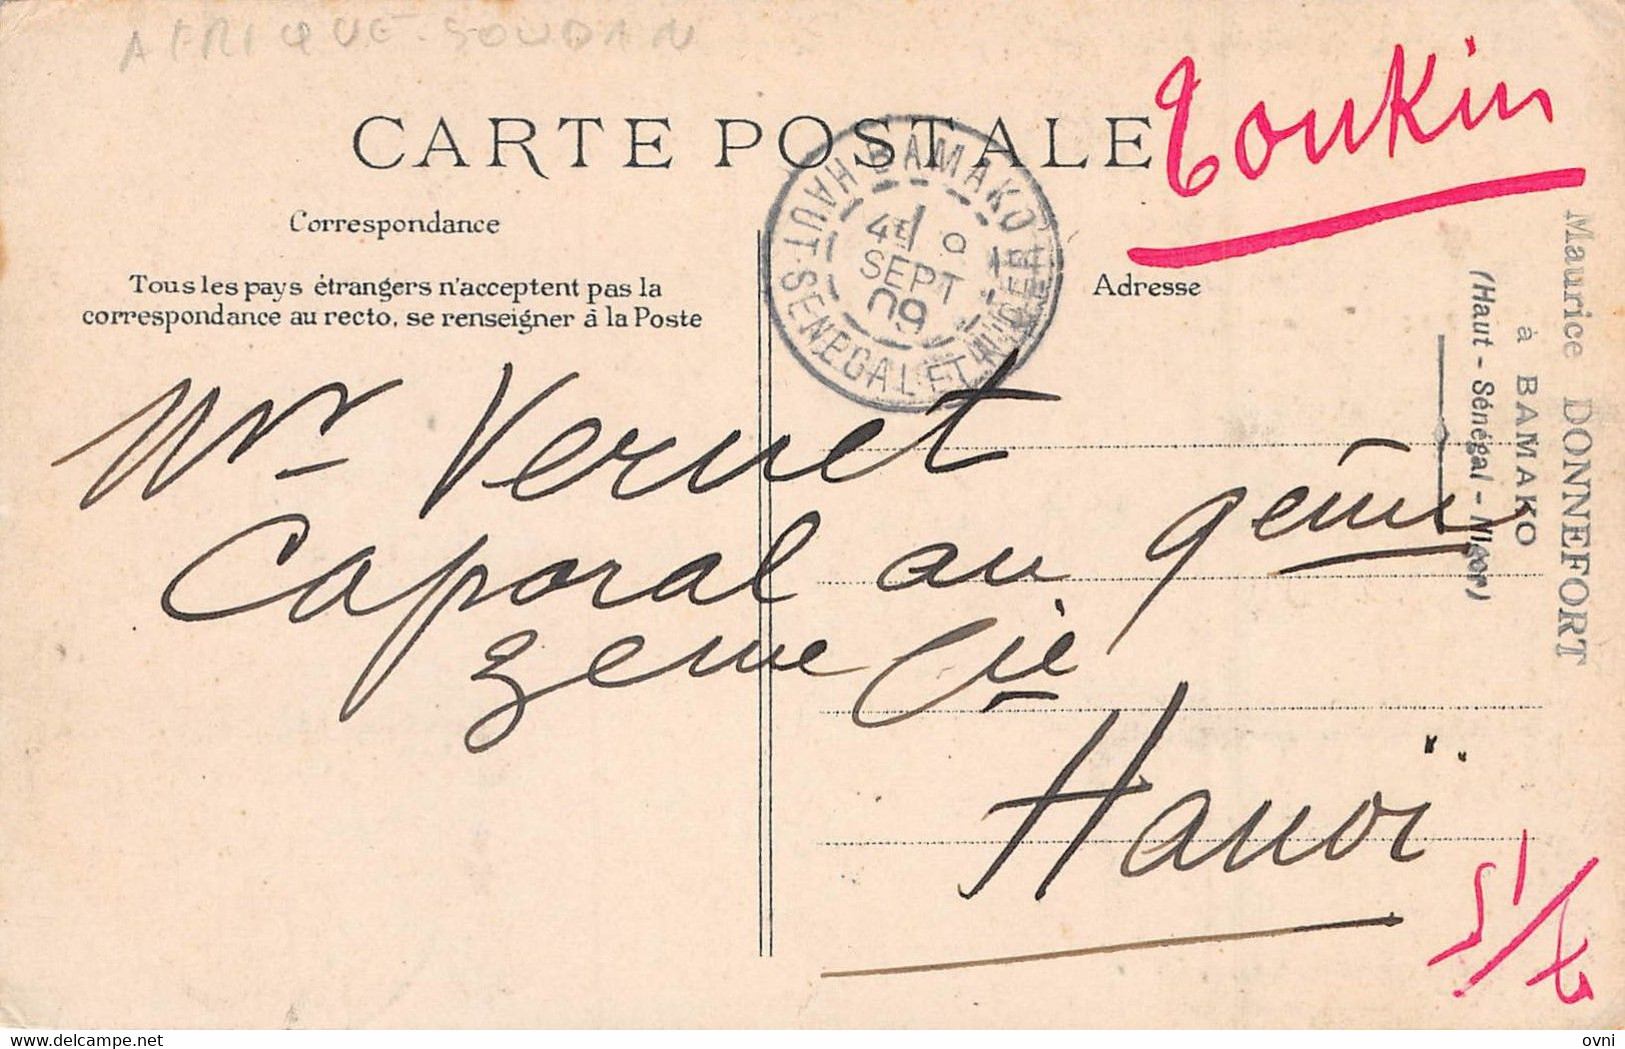 AFRIQUE-SOUDAN
Toukin
CARTE POSTALE
Correspondance
Tous les pays étrangers n'acceptent pas la
correspondance au recto, se renseigner à la Poste
Adresse
BAMAKO
HAUT-SENEGAL ET NIGER
4E 9
SEPT
09
Maurice DONNEFORT
à BAMAKO
(Haut-Sénégal-Niger)
Mr Vernet
Caporal au 9eme
3eme Cie
Hanoï
delcampe.net
ovni